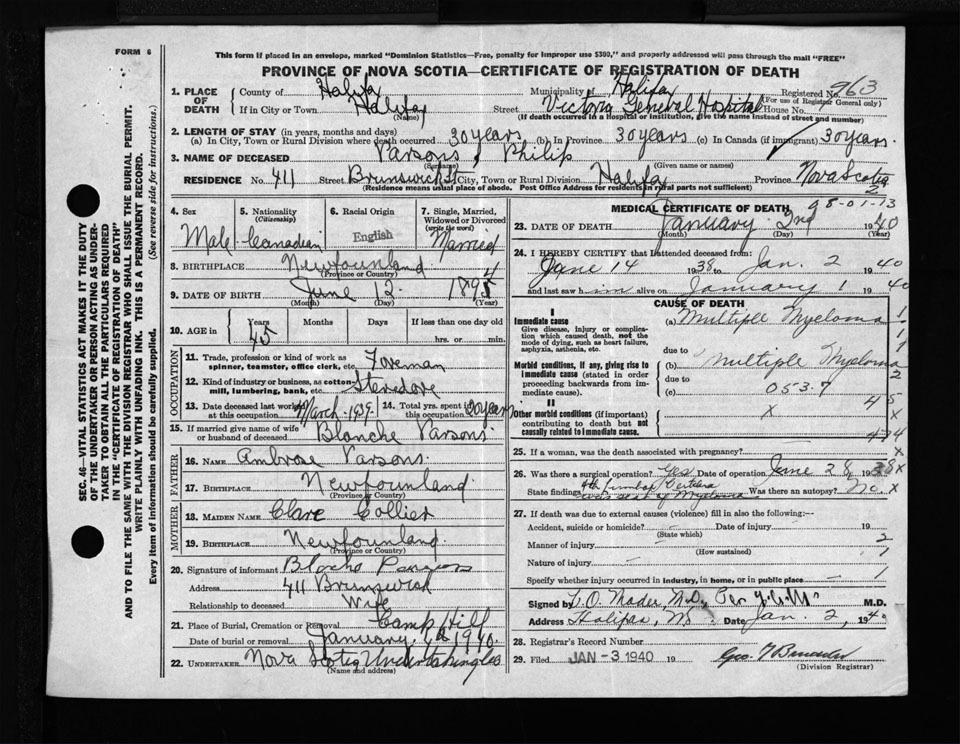 FORM 6
This form if placed in an envelope, marked "Dominion Statistics—Free, penalty for improper use $300," and properly addressed will pass through the mail "FREE"
PROVINCE OF NOVA SCOTIA—CERTIFICATE OF REGISTRATION OF DEATH
SEC. 46—VITAL STATISTICS ACT MAKES IT THE DUTY
OF THE UNDERTAKER OR PERSON ACTING AS UNDER-
TAKER TO OBTAIN ALL THE PARTICULARS REQUIRED
IN THE "CERTIFICATE OF REGISTRATION OF DEATH"
AND TO FILE THE SAME WITH THE DIVISION REGISTRAR WHO SHALL ISSUE THE BURIAL PERMIT.
WRITE PLAINLY WITH UNFADING INK. THIS IS A PERMANENT RECORD.
Every item of information should be carefully supplied. (See reverse side for instructions.)
1. PLACE OF DEATH County of Halifax Municipality of Halifax Registered No. 763
(For use of Registrar General only)
If in City or Town Halifax Street Victoria General Hospital House No.
(Name) (If death occurred in a Hospital or institution, give the name instead of street and number)
2. LENGTH OF STAY (in years, months and days)
(a) In City, Town or Rural Division where death occurred 30 years (b) In Province 30 years (c) In Canada (if immigrant) 30 years.
3. NAME OF DECEASED Parsons, Philip
(Surname) (Given name or names)
RESIDENCE No. 411 Street Brunswick St City, Town or Rural Division Halifax Province Nova Scotia
(Residence means usual place of abode. Post Office Address for residents in rural parts not sufficient) 2
4. Sex 5. Nationality (Citizenship) 6. Racial Origin 7. Single, Married, Widowed or Divorced (write the word)
Male Canadian English Married
8. BIRTHPLACE Newfounland
(Province or Country)
9. DATE OF BIRTH June 13 1895 4
(Month) (Day) (Year)
10. AGE in Years Months Days If less than one day old
45 hrs. or min.
OCCUPATION
11. Trade, profession or kind of work as spinner, teamster, office clerk, etc. Foreman
12. Kind of industry or business, as cotton mill, lumbering, bank, etc. Stevedore
13. Date deceased last worked at this occupation March 1939 14. Total yrs. spent in this occupation 20 years
15. If married give name of wife or husband of deceased Blanche Parsons
FATHER
16. Name Ambrose Parsons
17. Birthplace Newfounland
(Province or Country)
MOTHER
18. Maiden Name Clare Collier
19. Birthplace Newfounland
(Province or Country)
20. Signature of informant Parsons
Address 411 Brunswick
Relationship to deceased Wife
21. Place of Burial, Cremation or Removal Camp Hill
Date of burial or removal January 1940
22. UNDERTAKER Nova Scotia Undertaking Co.
(Name and address)
MEDICAL CERTIFICATE OF DEATH 98-01-13
23. DATE OF DEATH January 2nd 1940
(Month) (Day) (Year)
24. I HEREBY CERTIFY that I attended deceased from:
June 14 1938 to Jan. 2 1940
and last saw him alive on January 1 1940
CAUSE OF DEATH
I
Immediate cause (a) Multiple Myeloma
Give disease, injury or complication which caused death, not the mode of dying, such as heart failure, asphyxia, asthenia, etc.
due to
Morbid conditions, if any, giving rise to immediate cause (stated in order proceeding backwards from immediate cause)
(b) Multiple Myeloma
due to
(c) 053.7
II
Other morbid conditions (if important) contributing to death but not causally related to immediate cause. x
25. If a woman, was the death associated with pregnancy?
26. Was there a surgical operation? Yes Date of operation June 28 1938
State findings Was there an autopsy? No
27. If death was due to external causes (violence) fill in also the following:—
Accident, suicide or homicide? Date of injury 19
(State which)
Manner of injury
(How sustained)
Nature of injury
Specify whether injury occurred in industry, in home, or in public place
Signed by Mader, M.D. M.D.
Address Halifax, NS Date Jan. 2, 1940
28. Registrar's Record Number
29. Filed JAN -3 1940 19
(Division Registrar)